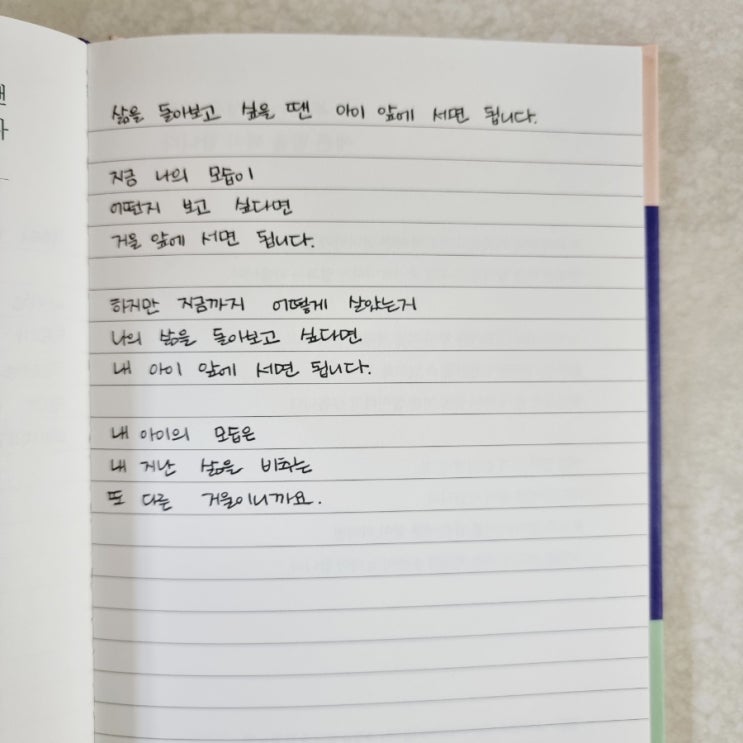 삶을 돌아보고 싶을 땐 아이 앞에 서면 됩니다.
지금 나의 모습이
어떤지 보고 싶다면
거울 앞에 서면 됩니다.
하지만 지금까지 어떻게 살았는지
나의 삶을 돌아보고 싶다면
내 아이 앞에 서면 됩니다.
내 아이의 모습은
내 지난 삶을 비추는
또 다른 거울이니까요.